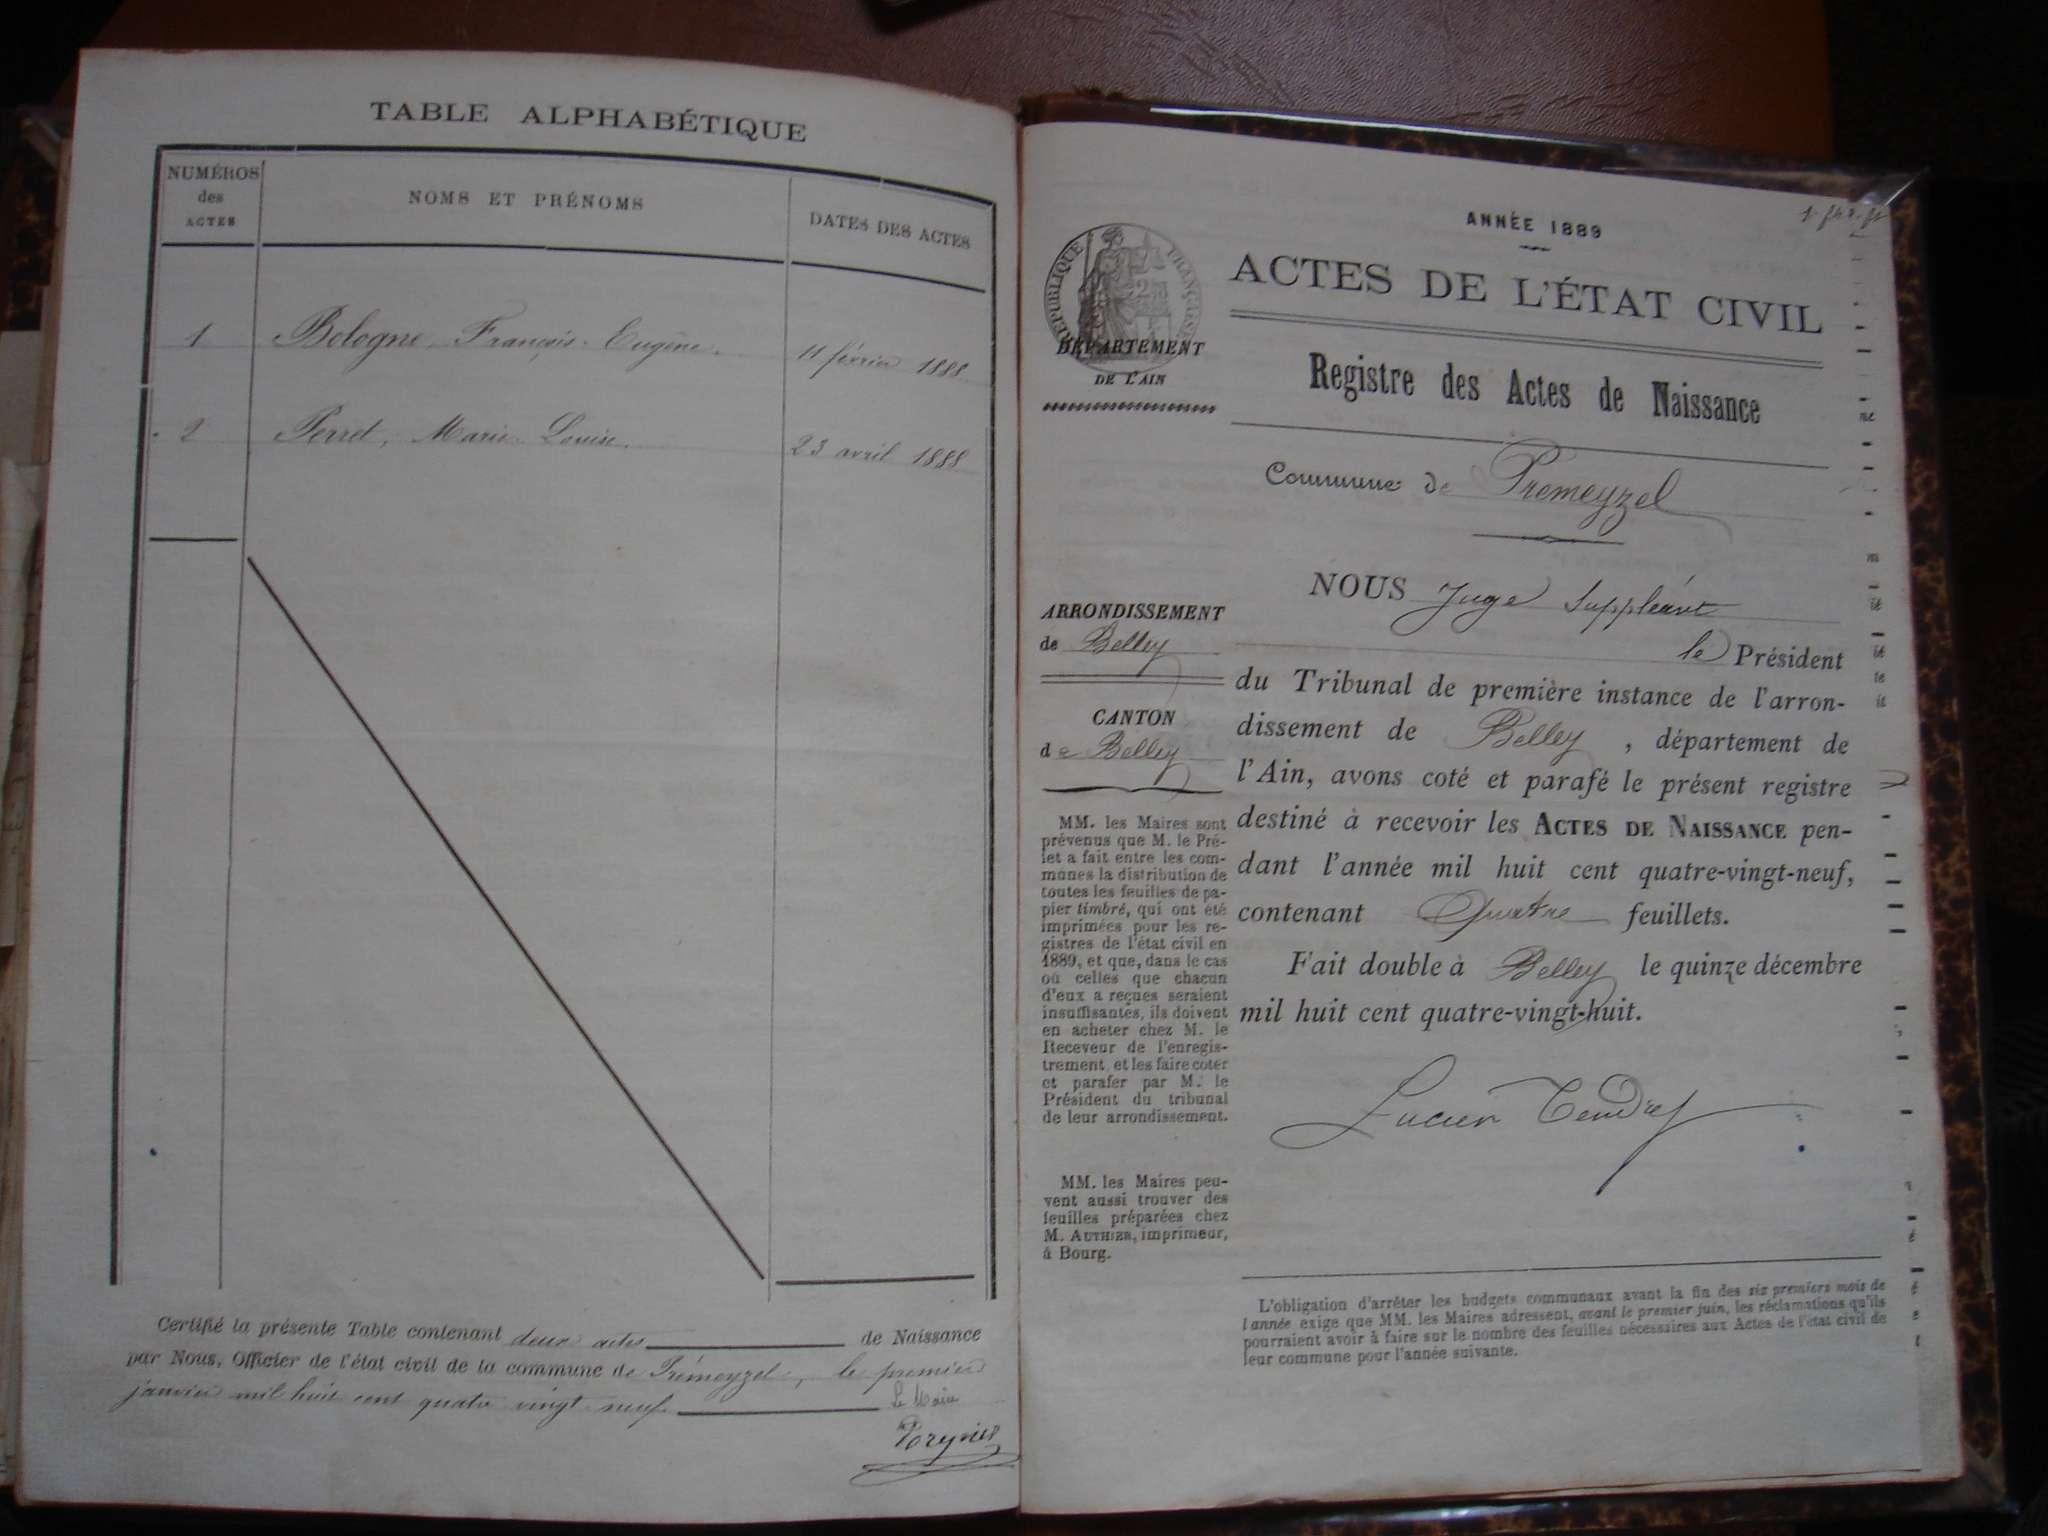 TABLE ALPHABÉTIQUE
NUMÉROS
des
ACTES
NOMS ET PRÉNOMS
DATES DES ACTES
1 Bologne, François-Eugène. 11 février 1888
2 Perret, Marie-Louise. 23 avril 1888
Certifié la présente Table contenant deux actes de Naissance
par Nous, Officier de l'état civil de la commune de Prémeyzel, le premier
janvier mil huit cent quatre vingt neuf
Le Maire
ANNÉE 1889
RÉPUBLIQUE FRANÇAISE
ACTES DE L'ÉTAT CIVIL
DÉPARTEMENT
DE L'AIN
Registre des Actes de Naissance
Commune de Prémeyzel
ARRONDISSEMENT
de Belley
CANTON
de Belley
MM. les Maires sont
prévenus que M. le Pré-
fet a fait entre les com-
munes la distribution de
toutes les feuilles de pa-
pier timbré, qui ont été
imprimées pour les re-
gistres de l'état civil en
1889, et que, dans le cas
où celles que chacun
d'eux a reçues seraient
insuffisantes, ils doivent
en acheter chez M. le
Receveur de l'enregis-
trement, et les faire coter
et parafer par M. le
Président du tribunal
de leur arrondissement.
MM. les Maires peu-
vent aussi trouver des
feuilles préparées chez
M. AUTHIER, imprimeur,
à Bourg.
NOUS Juge Suppléant
le Président
du Tribunal de première instance de l'arron-
dissement de Belley, département de
l'Ain, avons coté et parafé le présent registre
destiné à recevoir les ACTES DE NAISSANCE pen-
dant l'année mil huit cent quatre-vingt-neuf,
contenant Quatre feuillets.
Fait double à Belley le quinze décembre
mil huit cent quatre-vingt-huit.
Lucien Tendret
L'obligation d'arrêter les budgets communaux avant la fin des six premiers mois de
l'année exige que MM. les Maires adressent, avant le premier juin, les réclamations qu'ils
pourraient avoir à faire sur le nombre des feuilles nécessaires aux Actes de l'état civil de
leur commune pour l'année suivante.